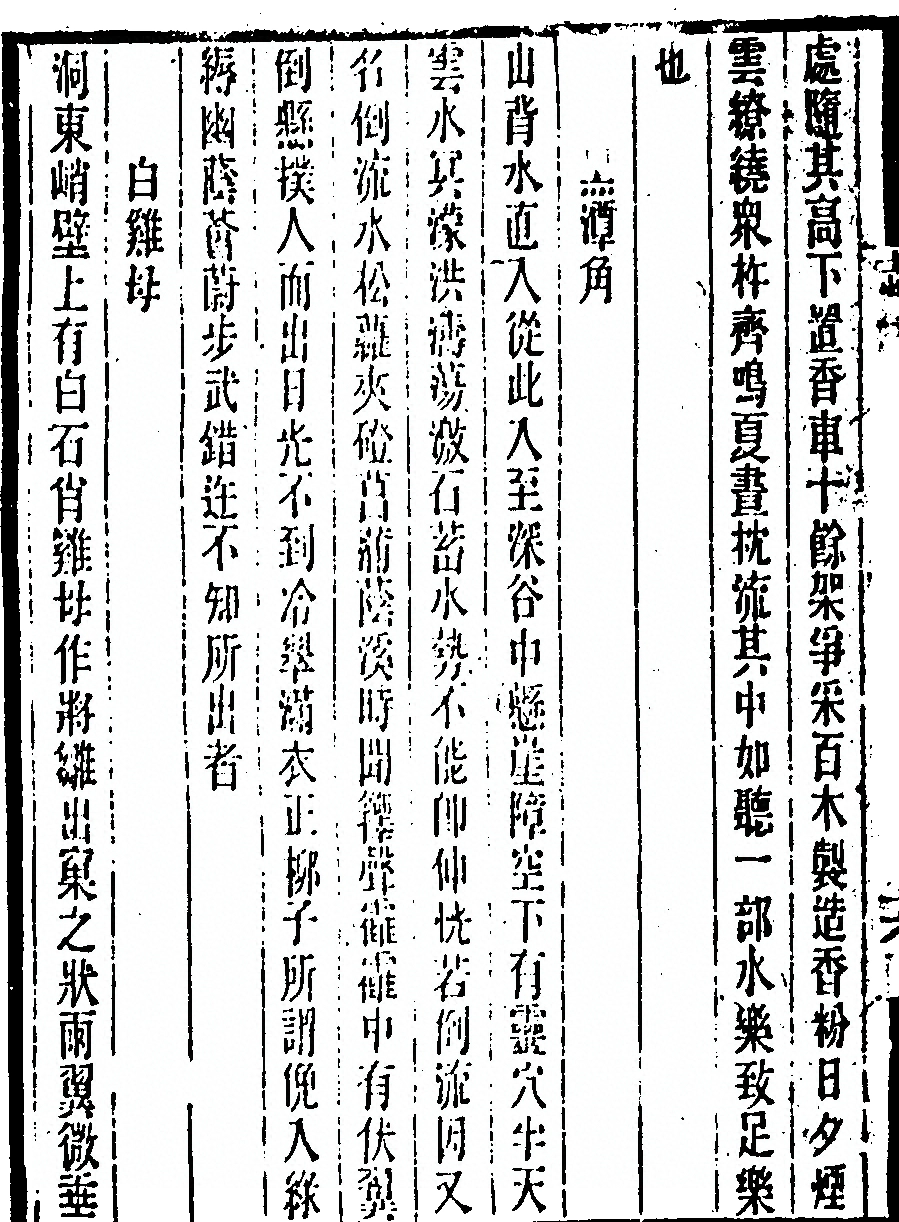 處隨其高下置香車十餘架爭采百木製造香粉日夕煙
雲繚繞衆杵齊鳴夏晝枕流其中如聽一部水樂致足樂
也
潭角
山背水直入從此入至深谷中懸崖障空下有靈穴半天
雲水冥濛洪濤蕩激石蓄水勢不能卽伸恍若倒流因又
名倒流水松蘿夾磴菖蒲蔭溪時聞鐘聲隱隱中有伏翼
倒懸撲人而出日光不到冷翠滿衣正柳子所謂俛入綠
縟幽蔭薈蔚步武錯迕不知所出者
白雞母
洞東峭壁上有白石肖雞母作將雛出窠之狀兩翼微垂